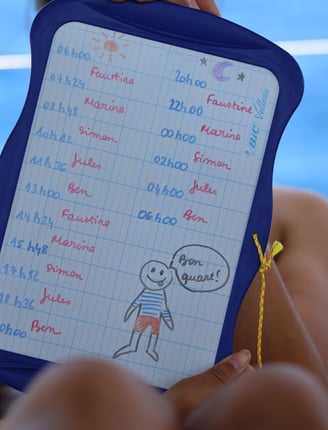 06h00
07h24 Faustine
08h48 Marine
10h12 Simon
11h36 Jules
13h00 Ben
14h24 Faustine
15h48 Marine
17h12 Simon
18h36 Jules
0h00 Ben
20h00
22h00 Faustine
00h00 Marine
02h00 Simon
04h00 Jules
06h00 Ben
BIC Velleda
Bon
quart!